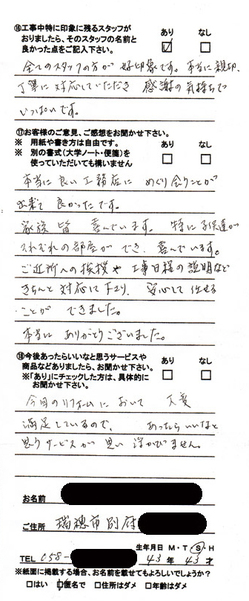 ⑯工事中特に印象に残るスタッフが
おりましたら、そのスタッフの名前と
良かった点をご記入下さい。
あり なし
全てのスタッフの方が 好印象です。本当に親切、
丁寧に 対応していただき 感謝の気持ちで
いっぱいです。
⑰お客様のご意見、ご感想をお聞かせ下さい。
※ 用紙や書き方は自由です。
※ 別の書式(大学ノート・便箋)を
使っていただいても構いません
あり なし
本当に 良い 工務店に めぐり会うことが
出来て 良かったです。
家族 皆 喜んでいます。特に 子供達が
それぞれの部屋が でき、喜んでいます。
ご近所への挨拶や 工事日程の説明など
きちんと 対応して下さり、安心して 任せる
ことが できました。
本当に ありがとうございました。
⑱今後あったらいいなと思うサービスや
商品などありましたら、お聞かせ下さい。
※「あり」にチェックした方は、具体的に
お聞かせ下さい
あり なし
今回のリフォームにおいて 大変
満足しているので、あったらいいなと
思うサービスが 思い浮かびません。
お名前
ご住所 瑞穂市別府
生年月日 M・T・S・H
TEL 058- 43年 43才
※紙面に掲載する場合、お名前を載せてもよろしいでしょうか?
□はい □匿名で □住所はダメ □年齢はダメ